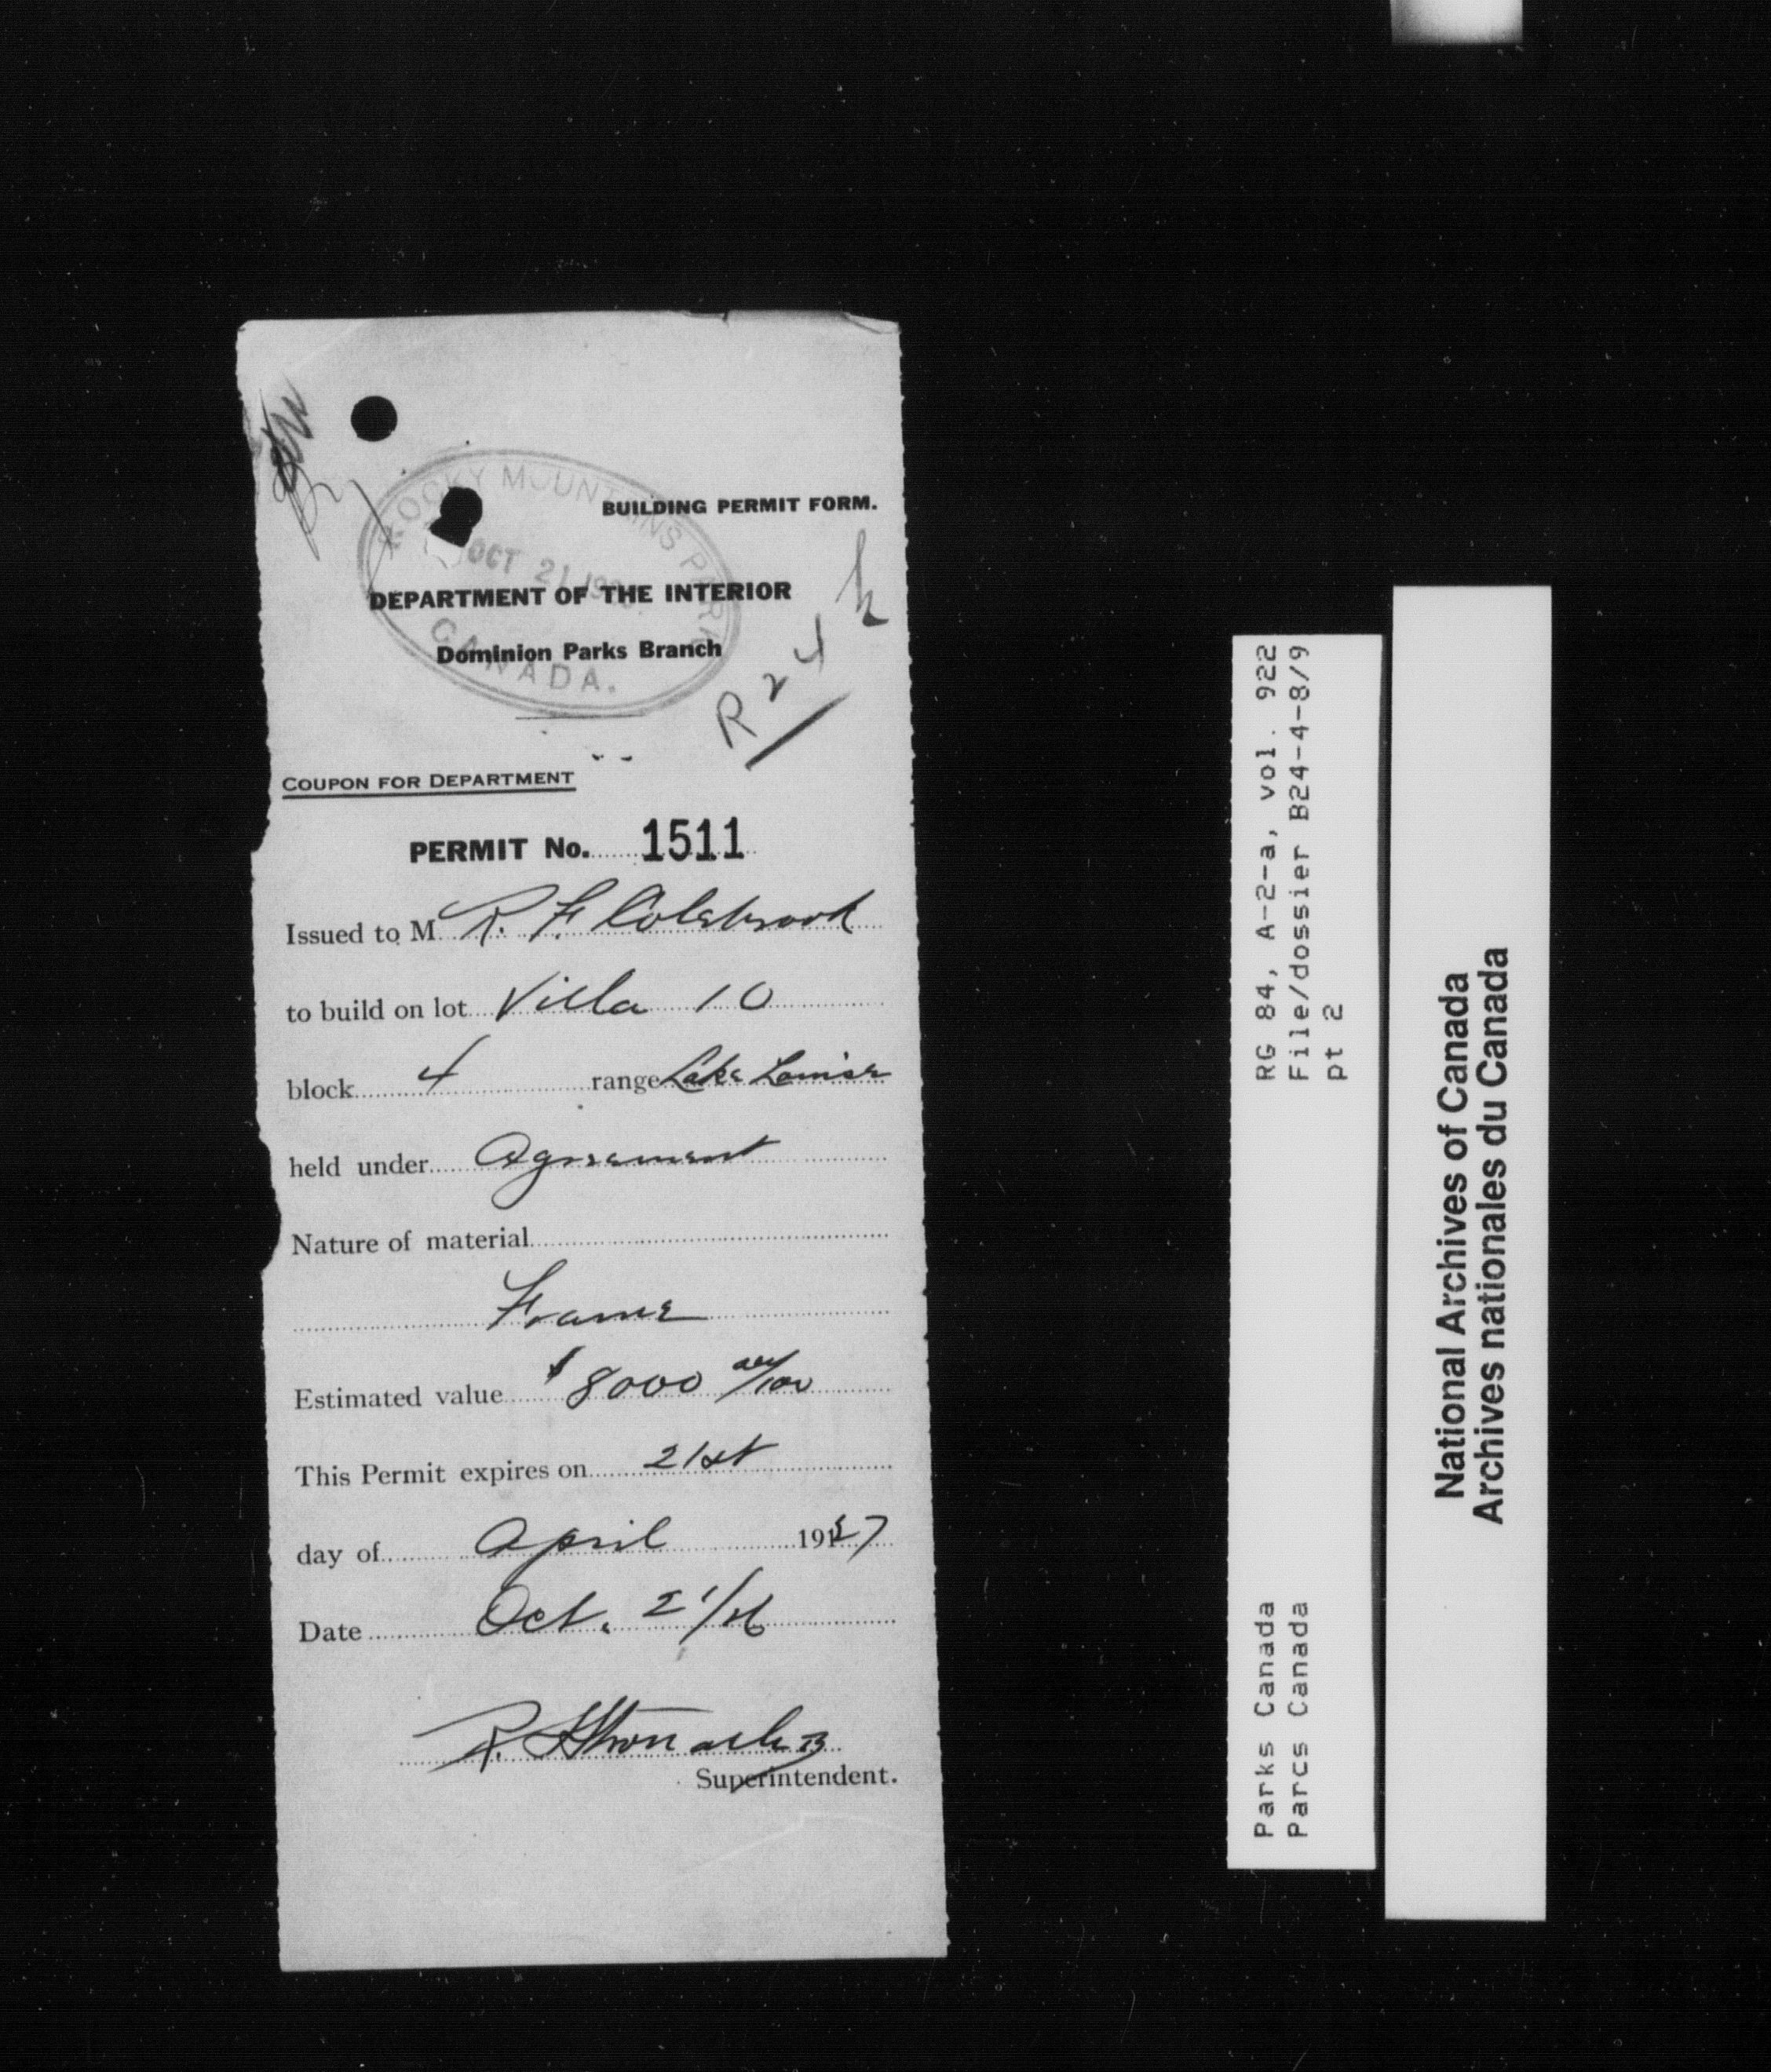 BUILDING PERMIT FORM.
ROCKY MOUNTAINS PARK
OCT 21 192
CANADA.
DEPARTMENT OF THE INTERIOR
Dominion Parks Branch
R 24
COUPON FOR DEPARTMENT
PERMIT No. 1511
Issued to M R. F. Colebrook
to build on lot Villa 10
block 4 range Lake Louise
held under Agreement
Nature of material
Frame
Estimated value $8000 00/100
This Permit expires on 21st
day of April 1927
Date Oct. 21/26
Superintendent.
RG 84, A-2-a, vol. 922
File/dossier B24-4-8/9
pt 2
Parks Canada
Parcs Canada
National Archives of Canada
Archives nationales du Canada